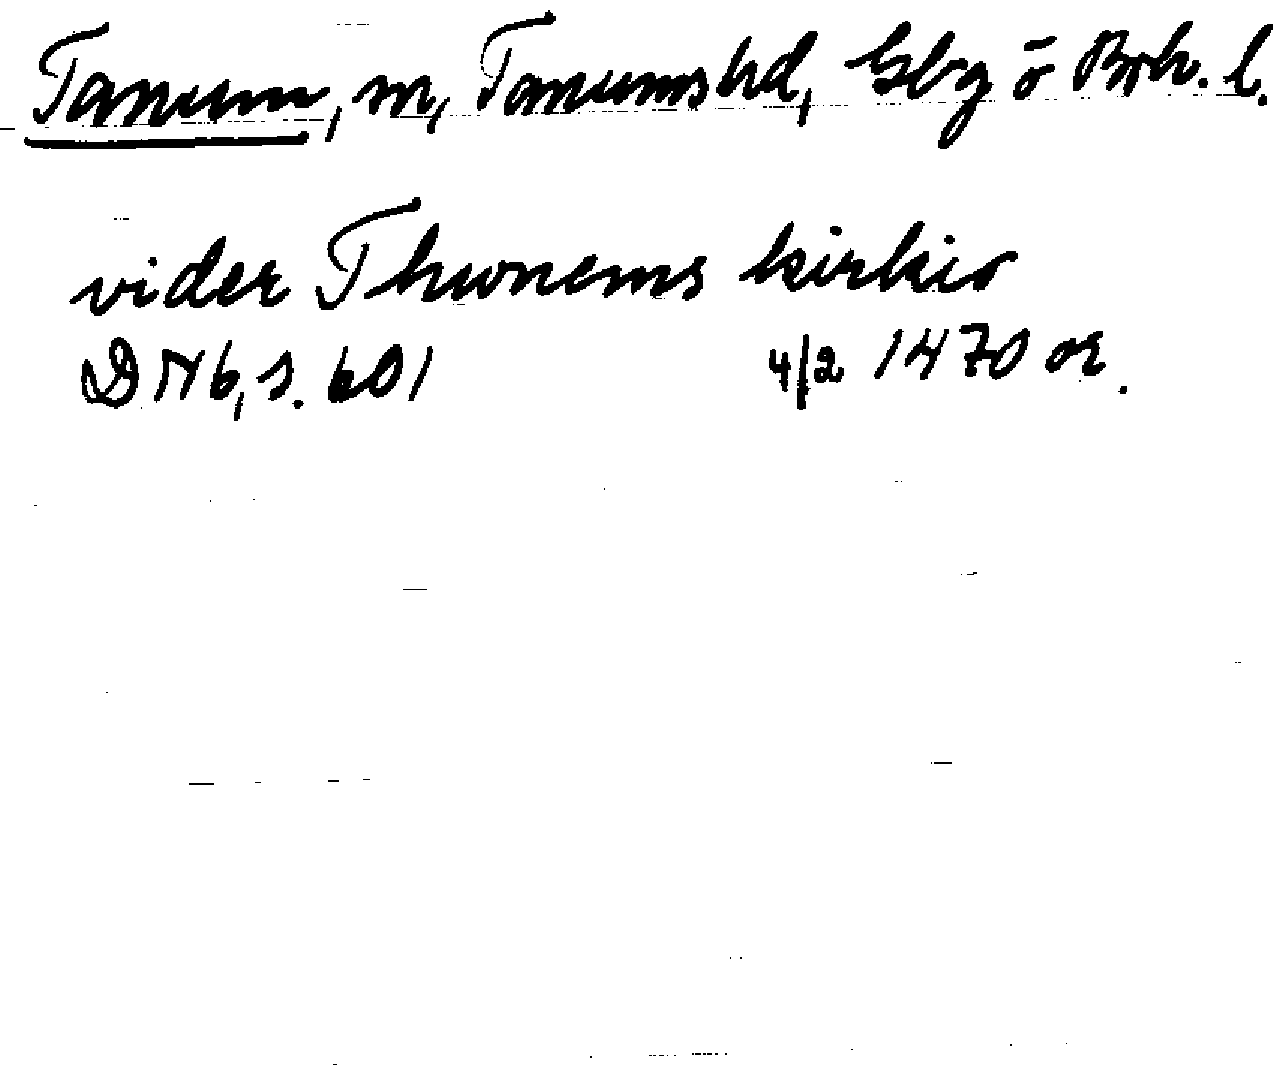 Tanum, sn, Tanums hd, Gbg o Boh. l.
vider Thunems kirkio
DN 6, s. 601 4/2 1470 or.